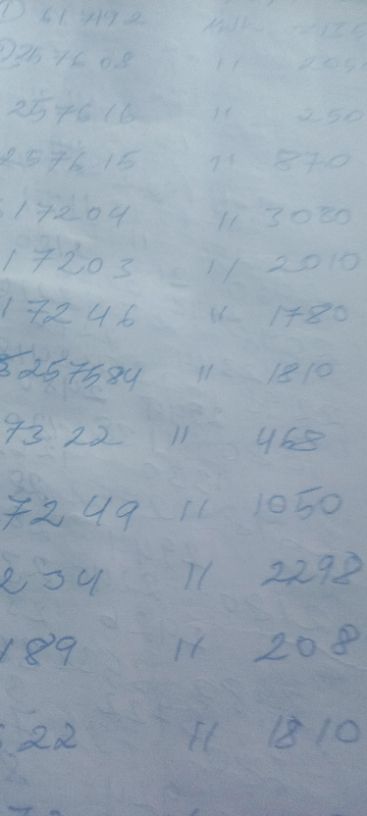 257608 " 205
257616 " 250
257615 " 870
17204 " 3080
17203 " 2010
17246 " 1780
257584 " 1810
9322 " 468
7249 " 1050
234 " 2298
189 " 208
22 " 1810